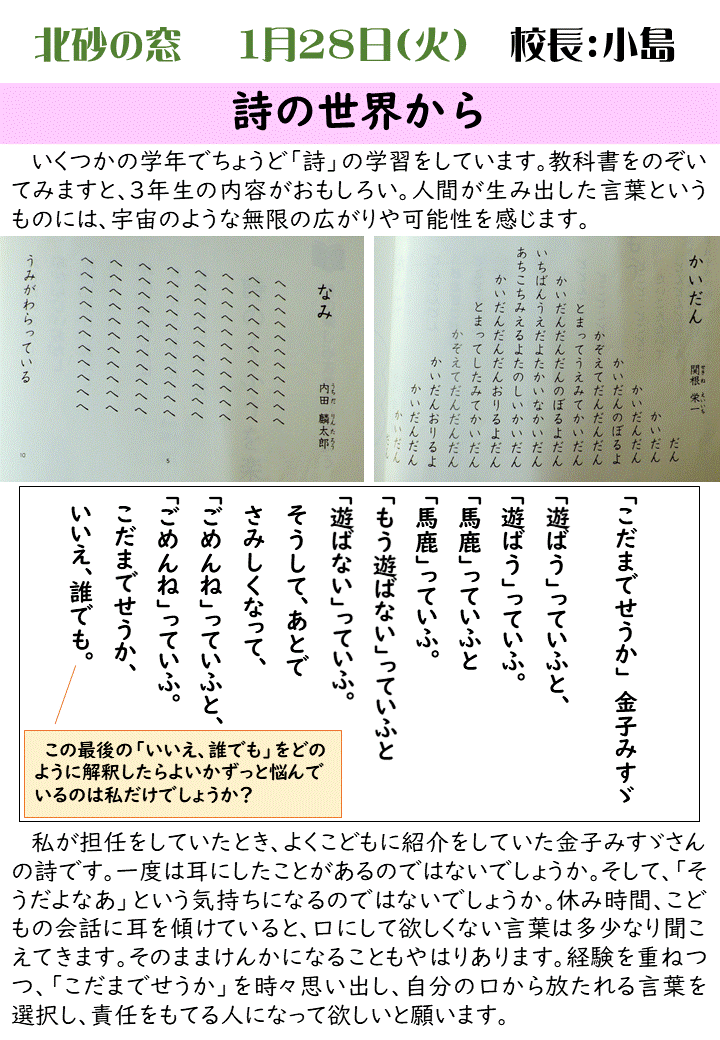 北砂の窓　1月28日(火)　校長：小島
詩の世界から
いくつかの学年でちょうど「詩」の学習をしています。教科書をのぞい
てみますと、3年生の内容がおもしろい。人間が生み出した言葉という
ものには、宇宙のような無限の広がりや可能性を感じます。
かいだん
関根 栄一
せきね えいいち
だん
かいだん
かいだんだん
かいだんのぼるよ
かぞえてだんだんだん
とまってうえみてかいだん
かいだんだんだんのぼるよだん
いちばんうえだよたかいなかいだん
あちこちみえるよたのしいかいだん
かいだんだんだんおりるよだん
とまってしたみてかいだん
かぞえてだんだんだん
かいだんおりるよ
かいだんだん
かいだん
だん
なみ
内田 麟太郎
うちだ りんたろう
へへへへへへへへへへ
へへへへへへへへへへ
へへへへへへへへへへ
へへへへへへへへへへ
へへへへへへへへへへ
へへへへへへへへへへ
へへへへへへへへへへ
へへへへへへへへへへ
うみがわらっている
「こだまでせうか」 金子みすゞ
「遊ばう」っていふと、
「遊ばう」っていふ。
「馬鹿」っていふと
「馬鹿」っていふ。
「もう遊ばない」っていふと
「遊ばない」っていふ。
そうして、あとで
さみしくなって、
「ごめんね」っていふと、
「ごめんね」っていふ。
こだまでせうか、
いいえ、誰でも。
この最後の「いいえ、誰でも」をどの
ように解釈したらよいかずっと悩んで
いるのは私だけでしょうか？
私が担任をしていたとき、よくこどもに紹介をしていた金子みすゞさん
の詩です。一度は耳にしたことがあるのではないでしょうか。そして、「そ
うだよなあ」という気持ちになるのではないでしょうか。休み時間、こど
もの会話に耳を傾けていると、口にして欲しくない言葉は多少なり聞こ
えてきます。そのままけんかになることもやはりあります。経験を重ねつ
つ、「こだまでせうか」を時々思い出し、自分の口から放たれる言葉を
選択し、責任をもてる人になって欲しいと願います。